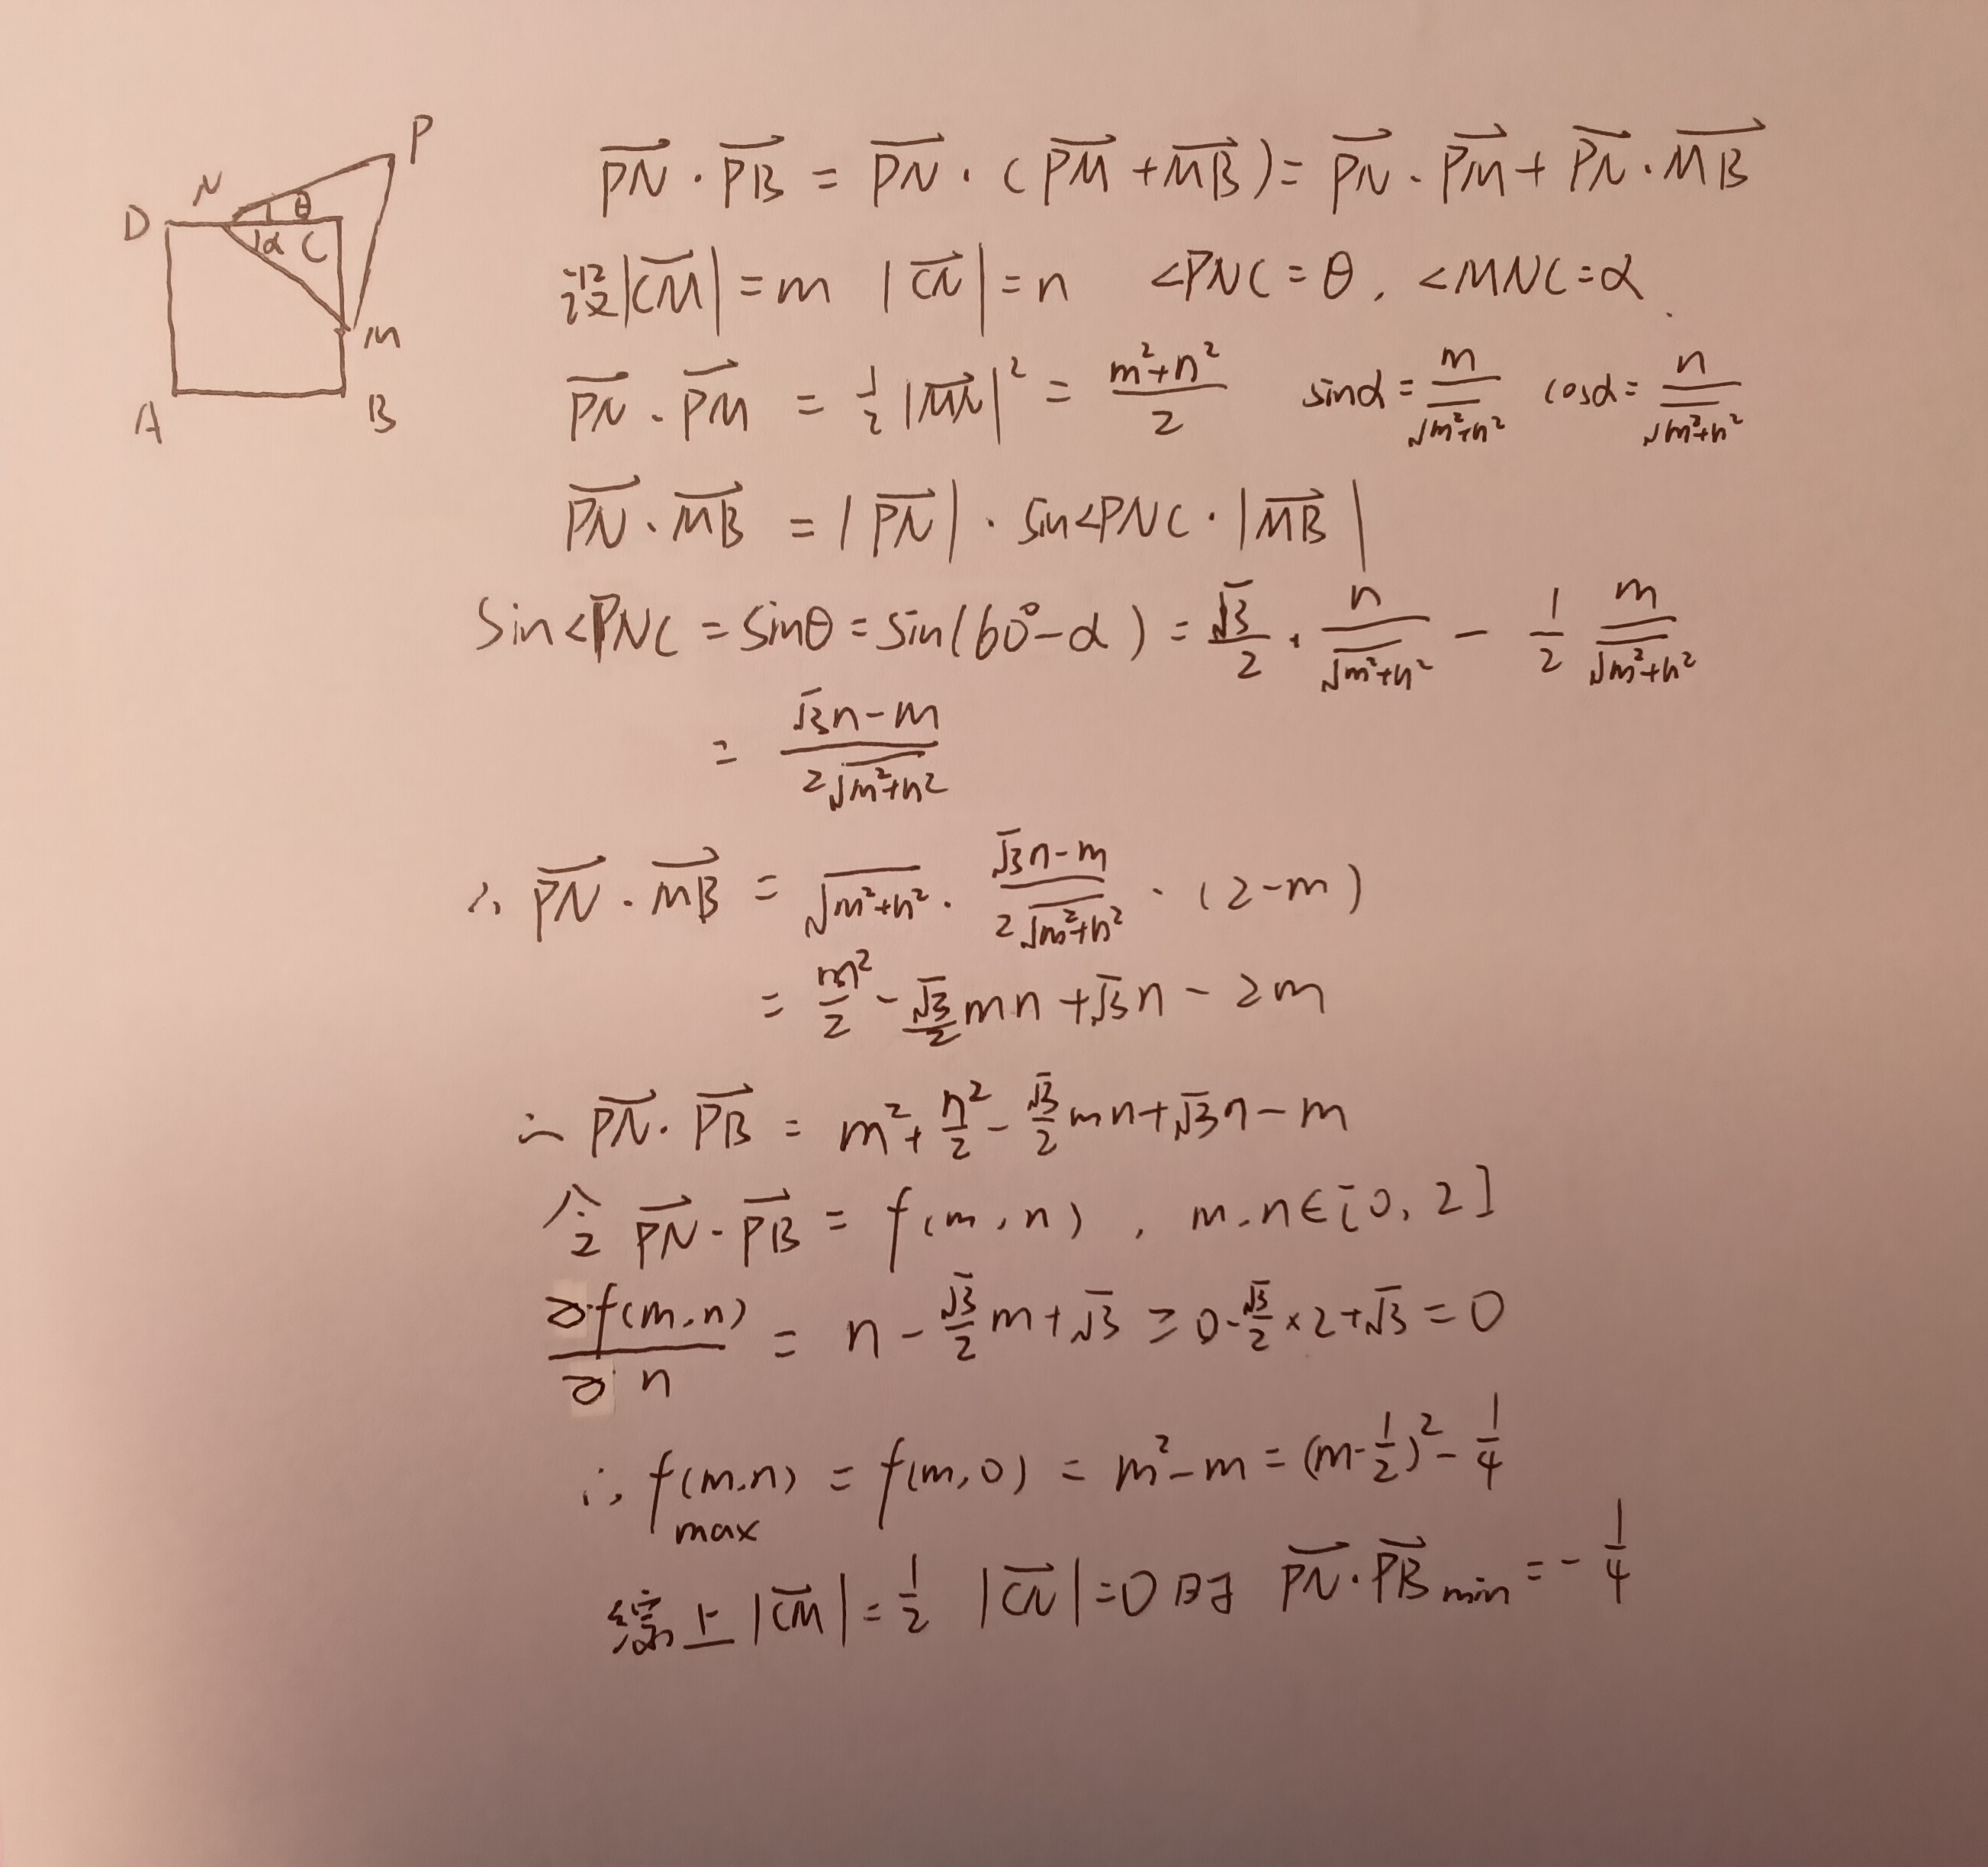 P
N θ
D α C
M
A B
$\overrightarrow{PN} \cdot \overrightarrow{PB} = \overrightarrow{PN} \cdot (\overrightarrow{PM} + \overrightarrow{MB}) = \overrightarrow{PN} \cdot \overrightarrow{PM} + \overrightarrow{PN} \cdot \overrightarrow{MB}$
设$|\overrightarrow{CM}| = m$ $|\overrightarrow{CN}| = n$ $\angle PNC = \theta$, $\angle MNC = \alpha$
$\overrightarrow{PN} \cdot \overrightarrow{PM} = \frac{1}{2} |\overrightarrow{MN}|^2 = \frac{m^2+n^2}{2}$ $\sin\alpha = \frac{m}{\sqrt{m^2+n^2}}$ $\cos\alpha = \frac{n}{\sqrt{m^2+n^2}}$
$\overrightarrow{PN} \cdot \overrightarrow{MB} = |\overrightarrow{PN}| \cdot \sin\angle PNC \cdot |\overrightarrow{MB}|$
$\sin\angle PNC = \sin\theta = \sin(60° - \alpha) = \frac{\sqrt{3}}{2} \cdot \frac{n}{\sqrt{m^2+n^2}} - \frac{1}{2} \frac{m}{\sqrt{m^2+n^2}}$
$= \frac{\sqrt{3}n - m}{2\sqrt{m^2+n^2}}$
$\therefore \overrightarrow{PN} \cdot \overrightarrow{MB} = \sqrt{m^2+n^2} \cdot \frac{\sqrt{3}n - m}{2\sqrt{m^2+n^2}} \cdot (2 - m)$
$= \frac{m^2}{2} - \frac{\sqrt{3}}{2}mn + \sqrt{3}n - 2m$
$\therefore \overrightarrow{PN} \cdot \overrightarrow{PB} = m^2 + \frac{n^2}{2} - \frac{\sqrt{3}}{2}mn + \sqrt{3}n - m$
令 $\overrightarrow{PN} \cdot \overrightarrow{PB} = f(m, n)$, $m, n \in [0, 2]$
$\frac{\partial f(m,n)}{\partial n} = n - \frac{\sqrt{3}}{2}m + \sqrt{3} \geq 0 - \frac{\sqrt{3}}{2} \times 2 + \sqrt{3} = 0$
$\therefore f(m,n)_{max} = f(m, 0) = m^2 - m = (m - \frac{1}{2})^2 - \frac{1}{4}$
综上 $|\overrightarrow{CM}| = \frac{1}{2}$ $|\overrightarrow{CN}| = 0$ 时 $\overrightarrow{PN} \cdot \overrightarrow{PB}_{min} = -\frac{1}{4}$